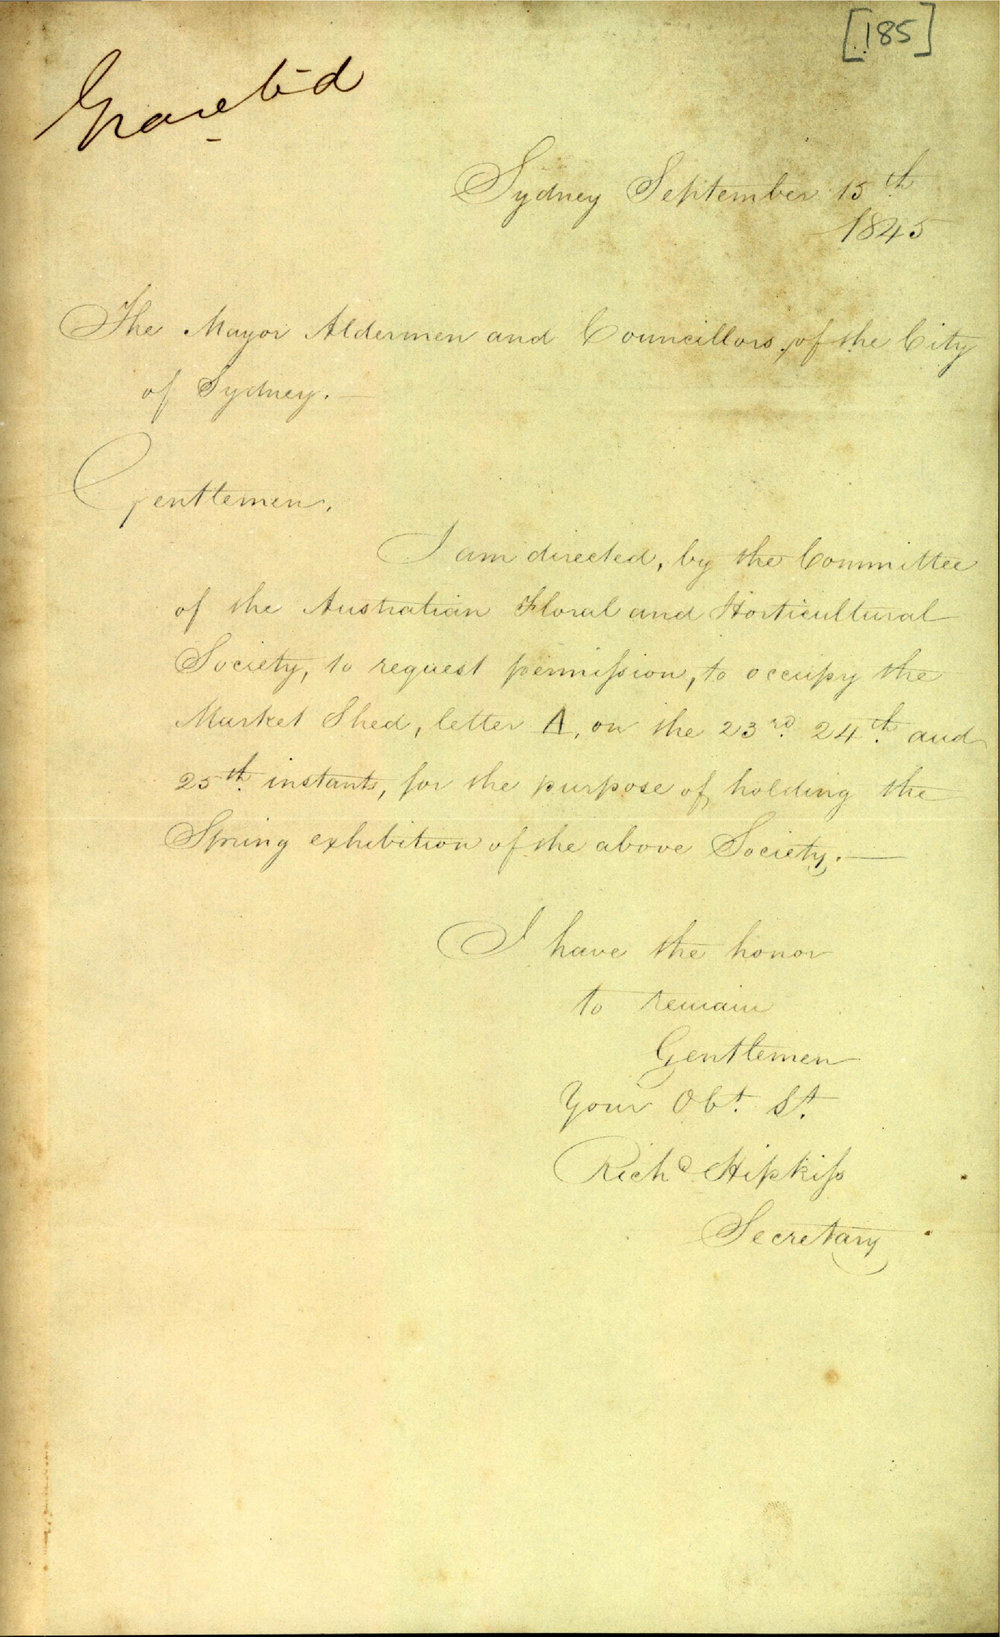 [185]
Granted
Sydney September 15th
1845
The Mayor Aldermen and Councillors, of the City
of Sydney. —
Gentlemen,
I am directed, by the Committee
of the Australian Floral and Horticultural
Society, to request permission, to occupy the
Market Shed, letter A, on the 23rd. 24th. and
25th. instant, for the purpose of holding the
Spring exhibition of the above Society. —
I have the honor
to remain
Gentlemen
Your Obt. St.
Richd Hipkiss
Secretary